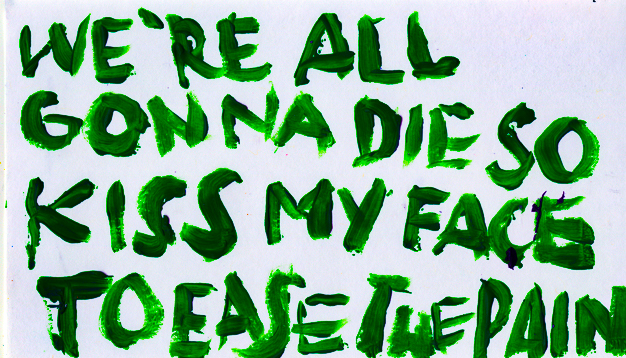 WE'RE ALL
GONNA DIE SO
KISS MY FACE
TO EASE THE PAIN